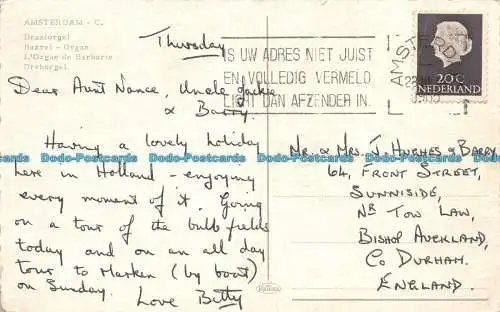 AMSTERDAM - C.
Draaiorgel
Barrel - Organ
L'Orgue de Barbarie
Drehorgel.
Thursday
Dear Aunt Nance, Uncle Jackie
& Barry,
Having a lovely holiday
here in Holland - enjoying
every moment of it. Going
on a tour of the bulb fields
today and on an all day
tour to Marken (by boat)
on Sunday.
Love Betty
IS UW ADRES NIET JUIST
EN VOLLEDIG VERMELD
LICHT DAN AFZENDER IN.
AMSTERD
20 C
NEDERLAND
Mr. & Mrs. J. Hughes & Barry,
64, FRONT STREET,
SUNNISIDE,
NR TOW LAW,
BISHOP AUCKLAND,
CO DURHAM.
ENGLAND.
Dodo-Postcards Dodo-Postcards Dodo-Postcards Dodo-Postcards Dodo-Postcards